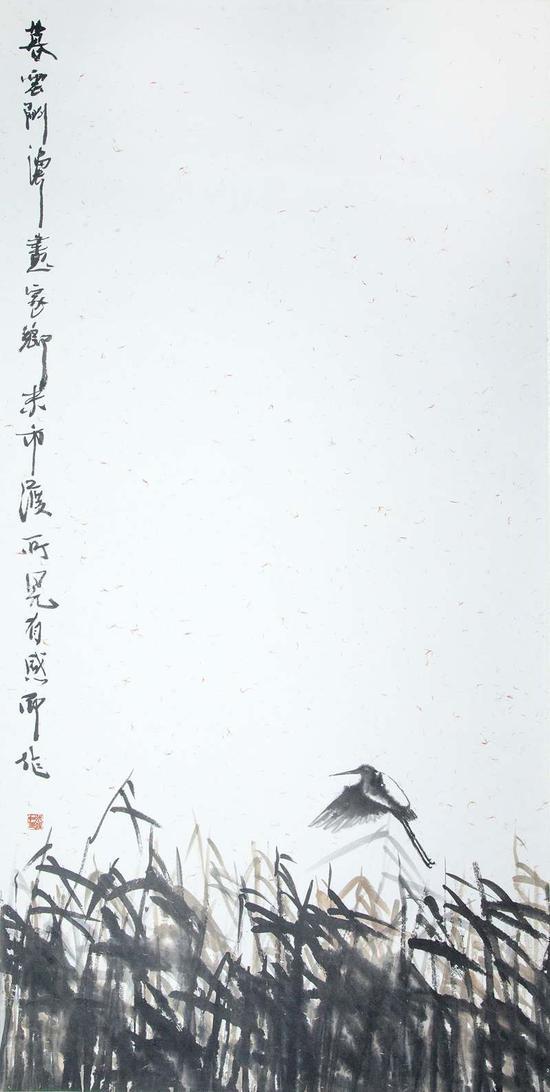 暮雲畫家鄉米市渡所見有感而作